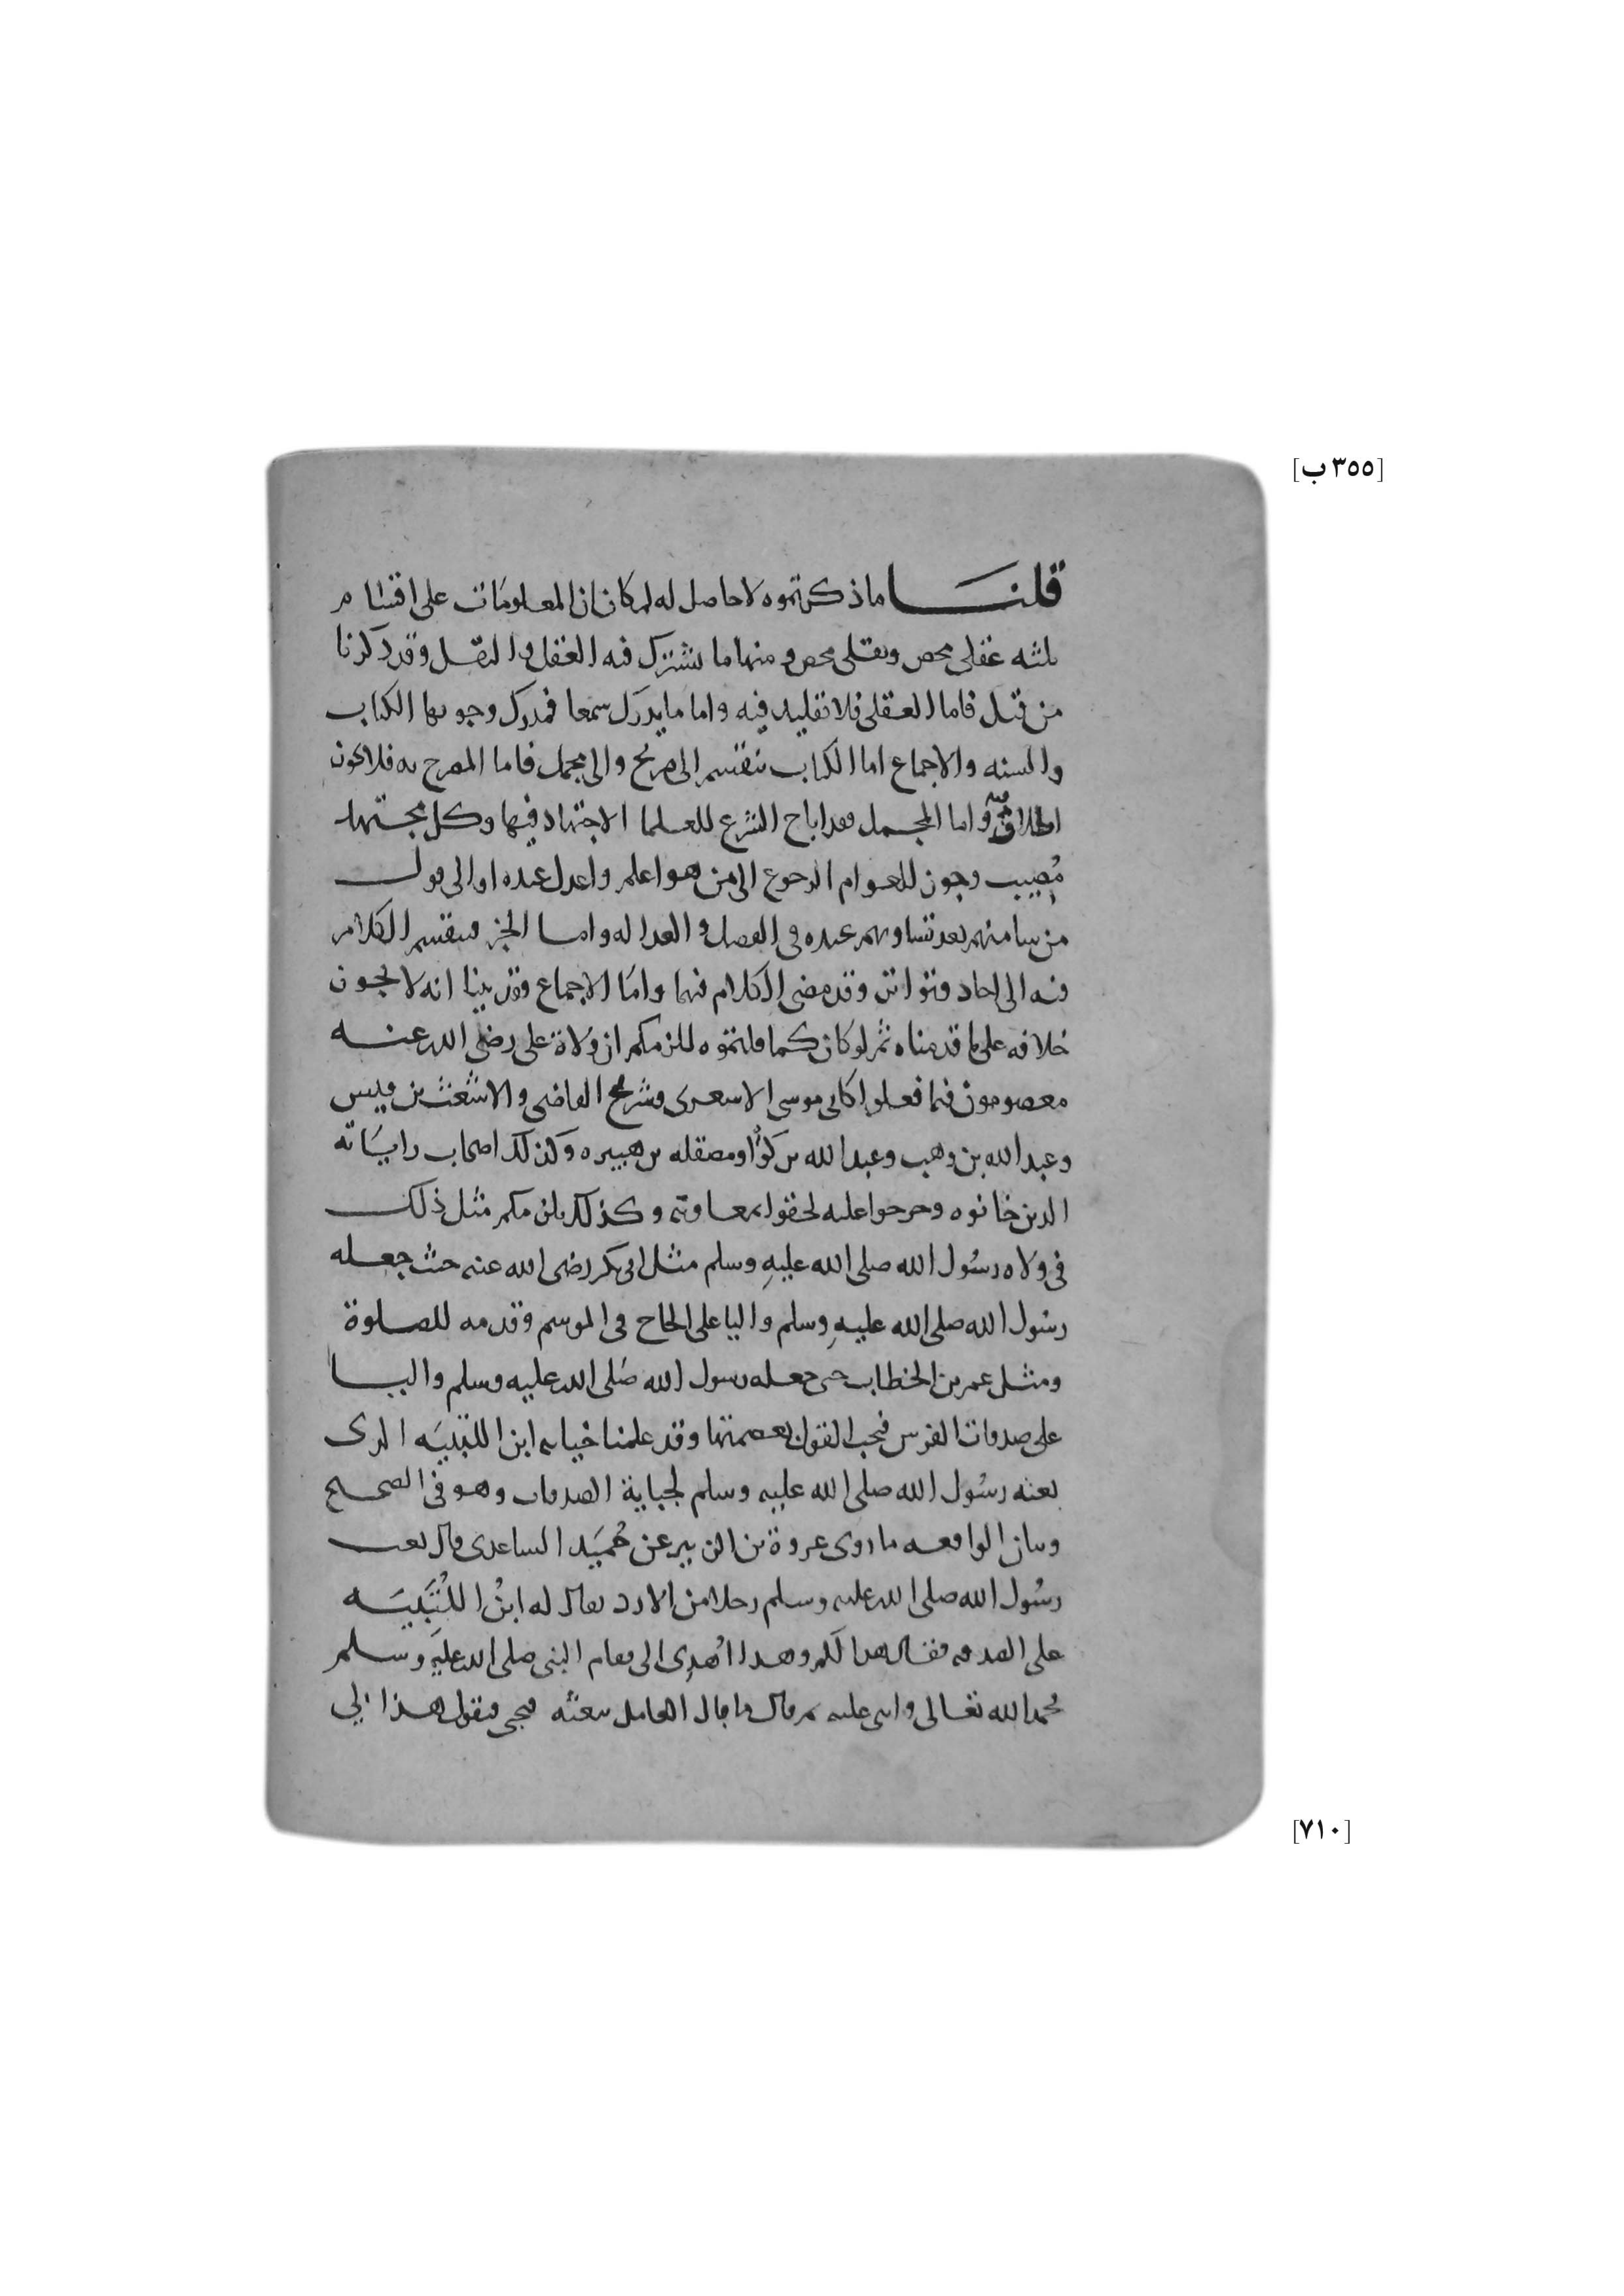 [٣٥٥ ب]
قلنا ما ذكرتموه لا حاصل له لمكان ان المعلومات على اقسام
ثلثه عقلى محض ونقلى محض ومنها ما يشترك فيه العقل والنقل وقد ذكرنا
من قبل فاما العقلى فلا تقليد فيه واما ما يدرك سمعا فمدرك وجوبها الكتاب
والسنه والاجماع اما الكتاب ينقسم الى صريح والى مجمل فاما المصرح به فلا يجوز
اطلاق فيه واما المجمل فقد اباح الشرع للعلما الاجتهاد فيها وكل مجتهد
مُصِيب وجوز للعوام الرجوع الى من هو اعلم واعدل عنده او الى قول
من شا منهم بعد تساويهم عنده فى الفضل والعداله واما الخبر فينقسم الكلام
فيه الى احاد وتواتر وقد مضى الكلام فيها واما الاجماع فقد بينا انه لا يجوز
خلافه على ما قدمناه ثم لو كان كما قلتموه للزمكم ان ولاة على رضى الله عنه
معصومون فيما فعلوا كابى موسى الاشعرى وشريح القاضى والاشعث بن قيس
وعبد الله بن وهب وعبد الله بن كوا ومصقله بن هبيره وكذلك اصحاب راياته
الذين خانوه وخرجوا عليه لحقوا بمعاوية وكذلك يلزمكم مثل ذلك
فى ولاه رسُول الله صلى الله عليهِ وسلم مثل ابى بكر رضى الله عنه حيث جعله
رسُول الله صلى الله عليهِ وسلم واليا على الحاج فى الموسم وقدمه للصلوة
ومثل عمر بن الخطاب حين جعله رسول الله صَلى الله عليه وسلم واليا
على صدقات الفرس فيجب القول بعصمتهما وقد علمنا خيانه ابن اللتبيَه الذى
بعثه رسُول الله صلى الله عليه وسلم لجباية الصدقات وهو فى الصحيح
وبيان الواقعه ما روى عروة بن الزبير عن حُميَد الساعدى قال بعث
رسُول الله صلى الله عليه وسلم رجلا من الازد يقال له ابنُ اللُتَبيَه
على الصدقه فقال هذا لكم وهذا اُهدِى الى فقام النبى صلى الله عليهِ وسلم
محمد الله تعالى واثنى عليه ثم قال ما بال العامل نبعثه فيجى فيقول هذا لى
[٧١٠]